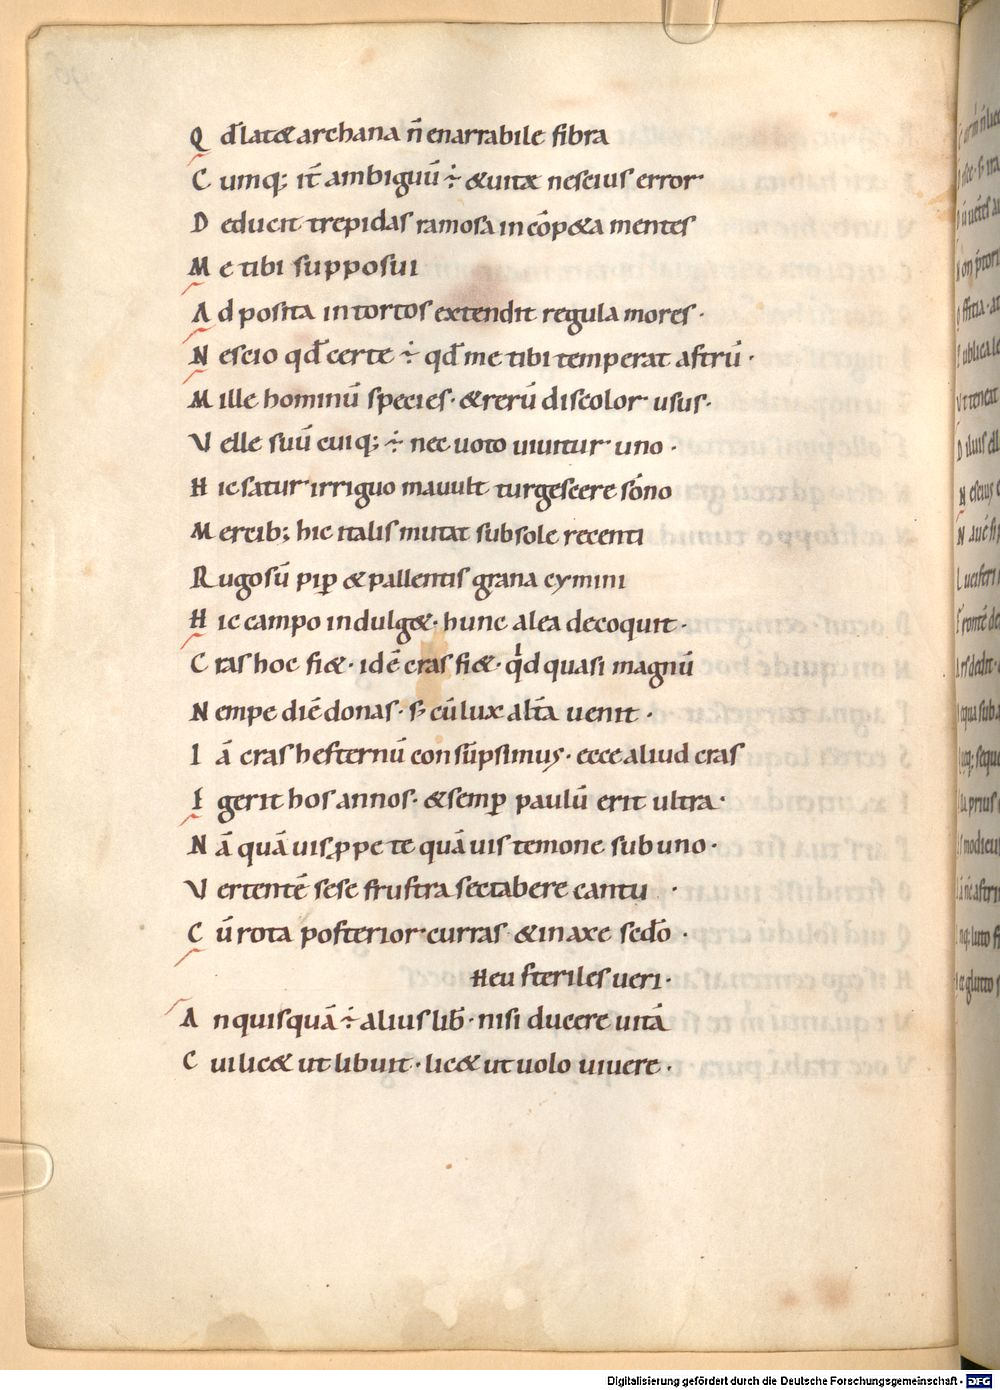 Q d̄ latet archana n̄ enarrabile fibra
C umq; it̄ ambiguū ÷ & uitæ nescius error
D educit trepidas ramosa in cōp&a mentes
M e tibi supposui
A d posita intortos extendit regula mores·
N escio qd̄ certe ÷ qd̄ me tibi temperat astrū·
M ille hominū species· & rerū discolor usus·
V elle suū cuiq; ÷ nec uoto uiuitur uno·
H ic satur irriguo mauult turgescere sōno
M ercib; hic italis mutat sub sole recenti
R ugosū pip̄ & pallentis grana cymini
H ic campo indulg&· hunc alea decoquit·
C ras hoc fi&· idē cras fi&· qͥd quasi magnū
N empe diē donas· s; cū lux alt̄a uenit·
I ā cras hesternū consūpsimus· ecce aliud cras
E gerit hos annos· & semp̄ paulū erit ultra·
N ā quāuis ꝓpe te quāuis temone sub uno·
V ertentē sese frustra sectabere cantu·
C ū rota posterior curras & in axe sedo·
Heu steriles ueri·
A n quisquā ÷ alius lib̄· nisi ducere uitā
C ui lic& ut libuit· lic& ut uolo uiuere·
Digitalisierung gefördert durch die Deutsche Forschungsgemeinschaft - DFG